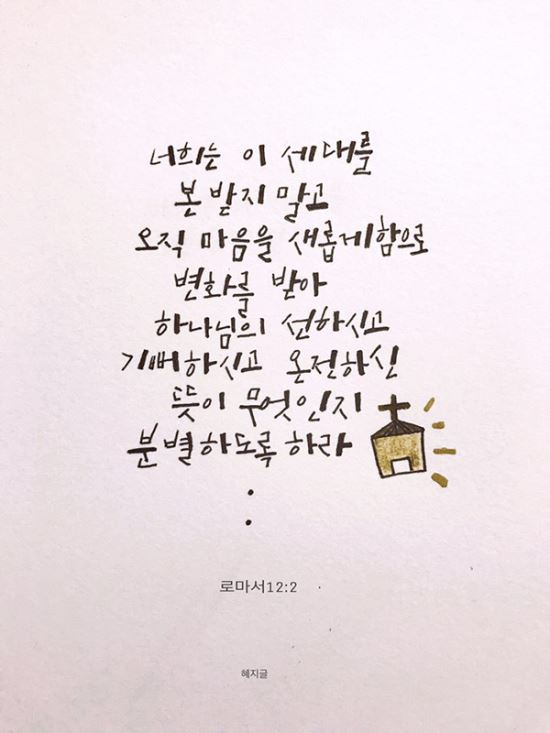 너희는 이 세대를
본 받지 말고
오직 마음을 새롭게함으로
변화를 받아
하나님의 선하시고
기뻐하시고 온전하신
뜻이 무엇인지
분별하도록 하라
로마서12:2
혜지글